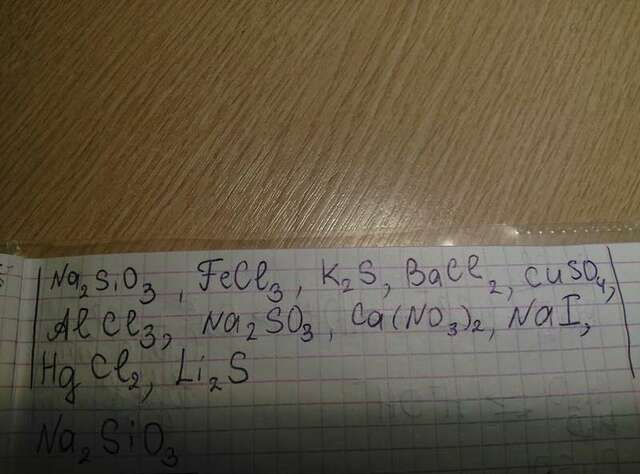 Na₂SiO₃, FeCl₃, K₂S, BaCl₂, CuSO₄,
AlCl₃, Na₂SO₃, Ca(NO₃)₂, NaI,
HgCl₂, Li₂S
Na₂SiO₃